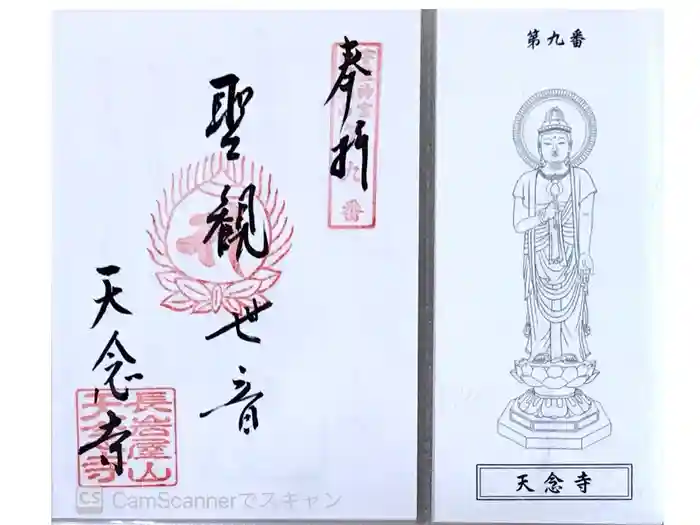 奉拝
聖観世音
天念寺
長岩屋山
天念寺
九番
第九番
天念寺
CS CamScannerでスキャン